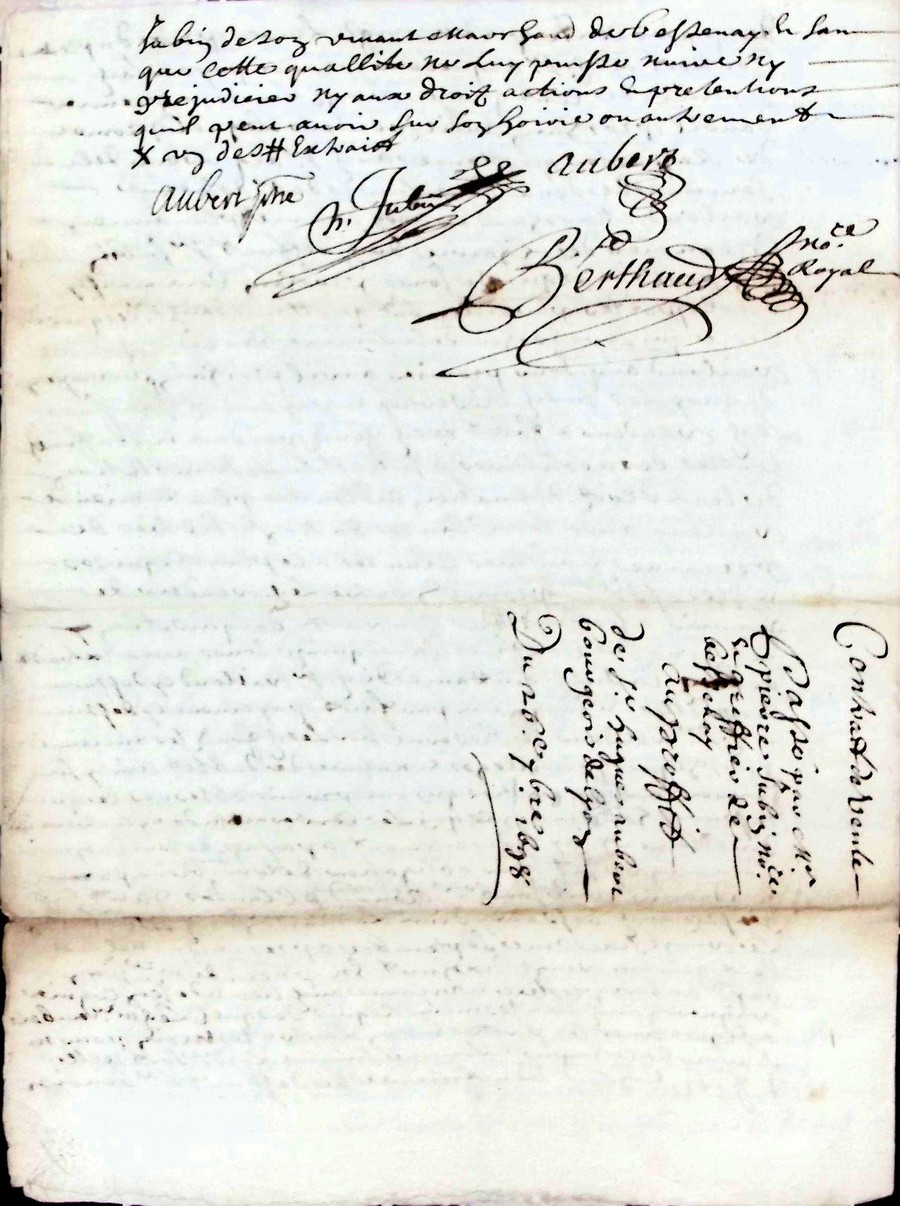 Jubin de son vivant marchand de bessenay & san
que cette quallité ne luy puisse nuire ny
prejudicier ny aux droitz actions & pretentions
quil peut avoir sur son hoirie ou autrement
X
Extraict
aubert
aubert
P. Jubin
Berthaud no.re
Royal
Contract de vente
Passé par Mer
pierre Jubin no.re
& greffier de
bessenay
au proffit
de sr hugues aubert
bourgeois de lyon
Du 20.e 7.bre 1698